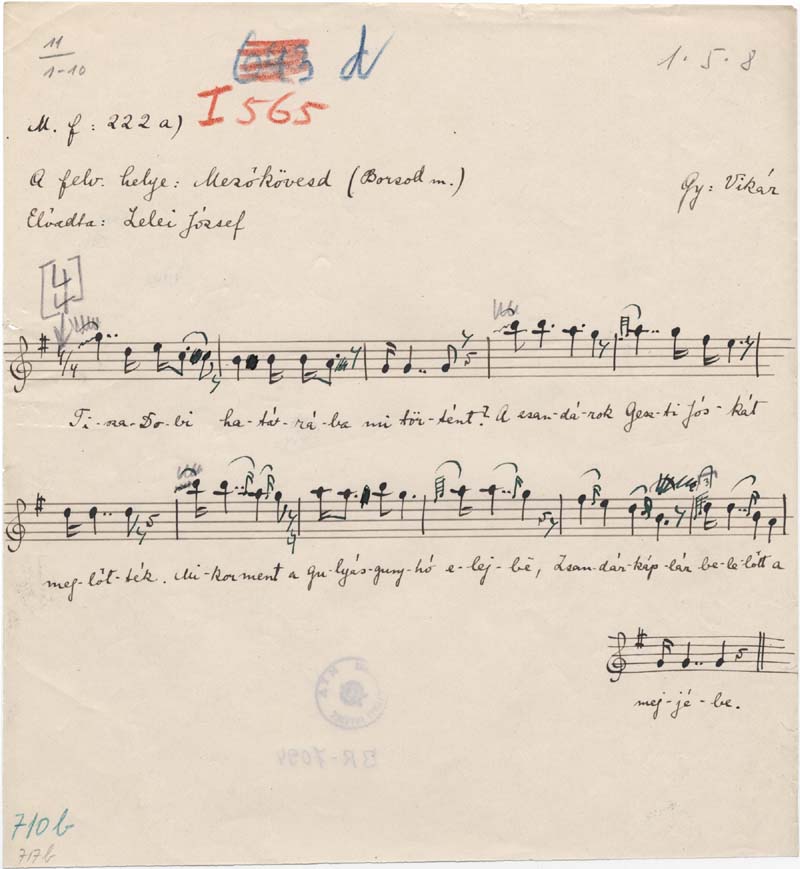 11
1-10
d
1. 5. 8
I 565
M. f : 222 a)
A felv. helye: Mezőkövesd (Borsod m.)
Gy: Vikár
Előadta: Lelei József
4
4
Ti-sza-Do-bi ha-tá-rá-ba mi tör-tént? A csan-dá-rok Gesz-ti Jós-kát
meg-lőt-ték. Mi-kor ment a gu-lyás-guny-hó e-lej-bë, Zsan-dár-káp-lár be-le-lőtt a
mej-jé-be.
BR-7094
710 b
717b